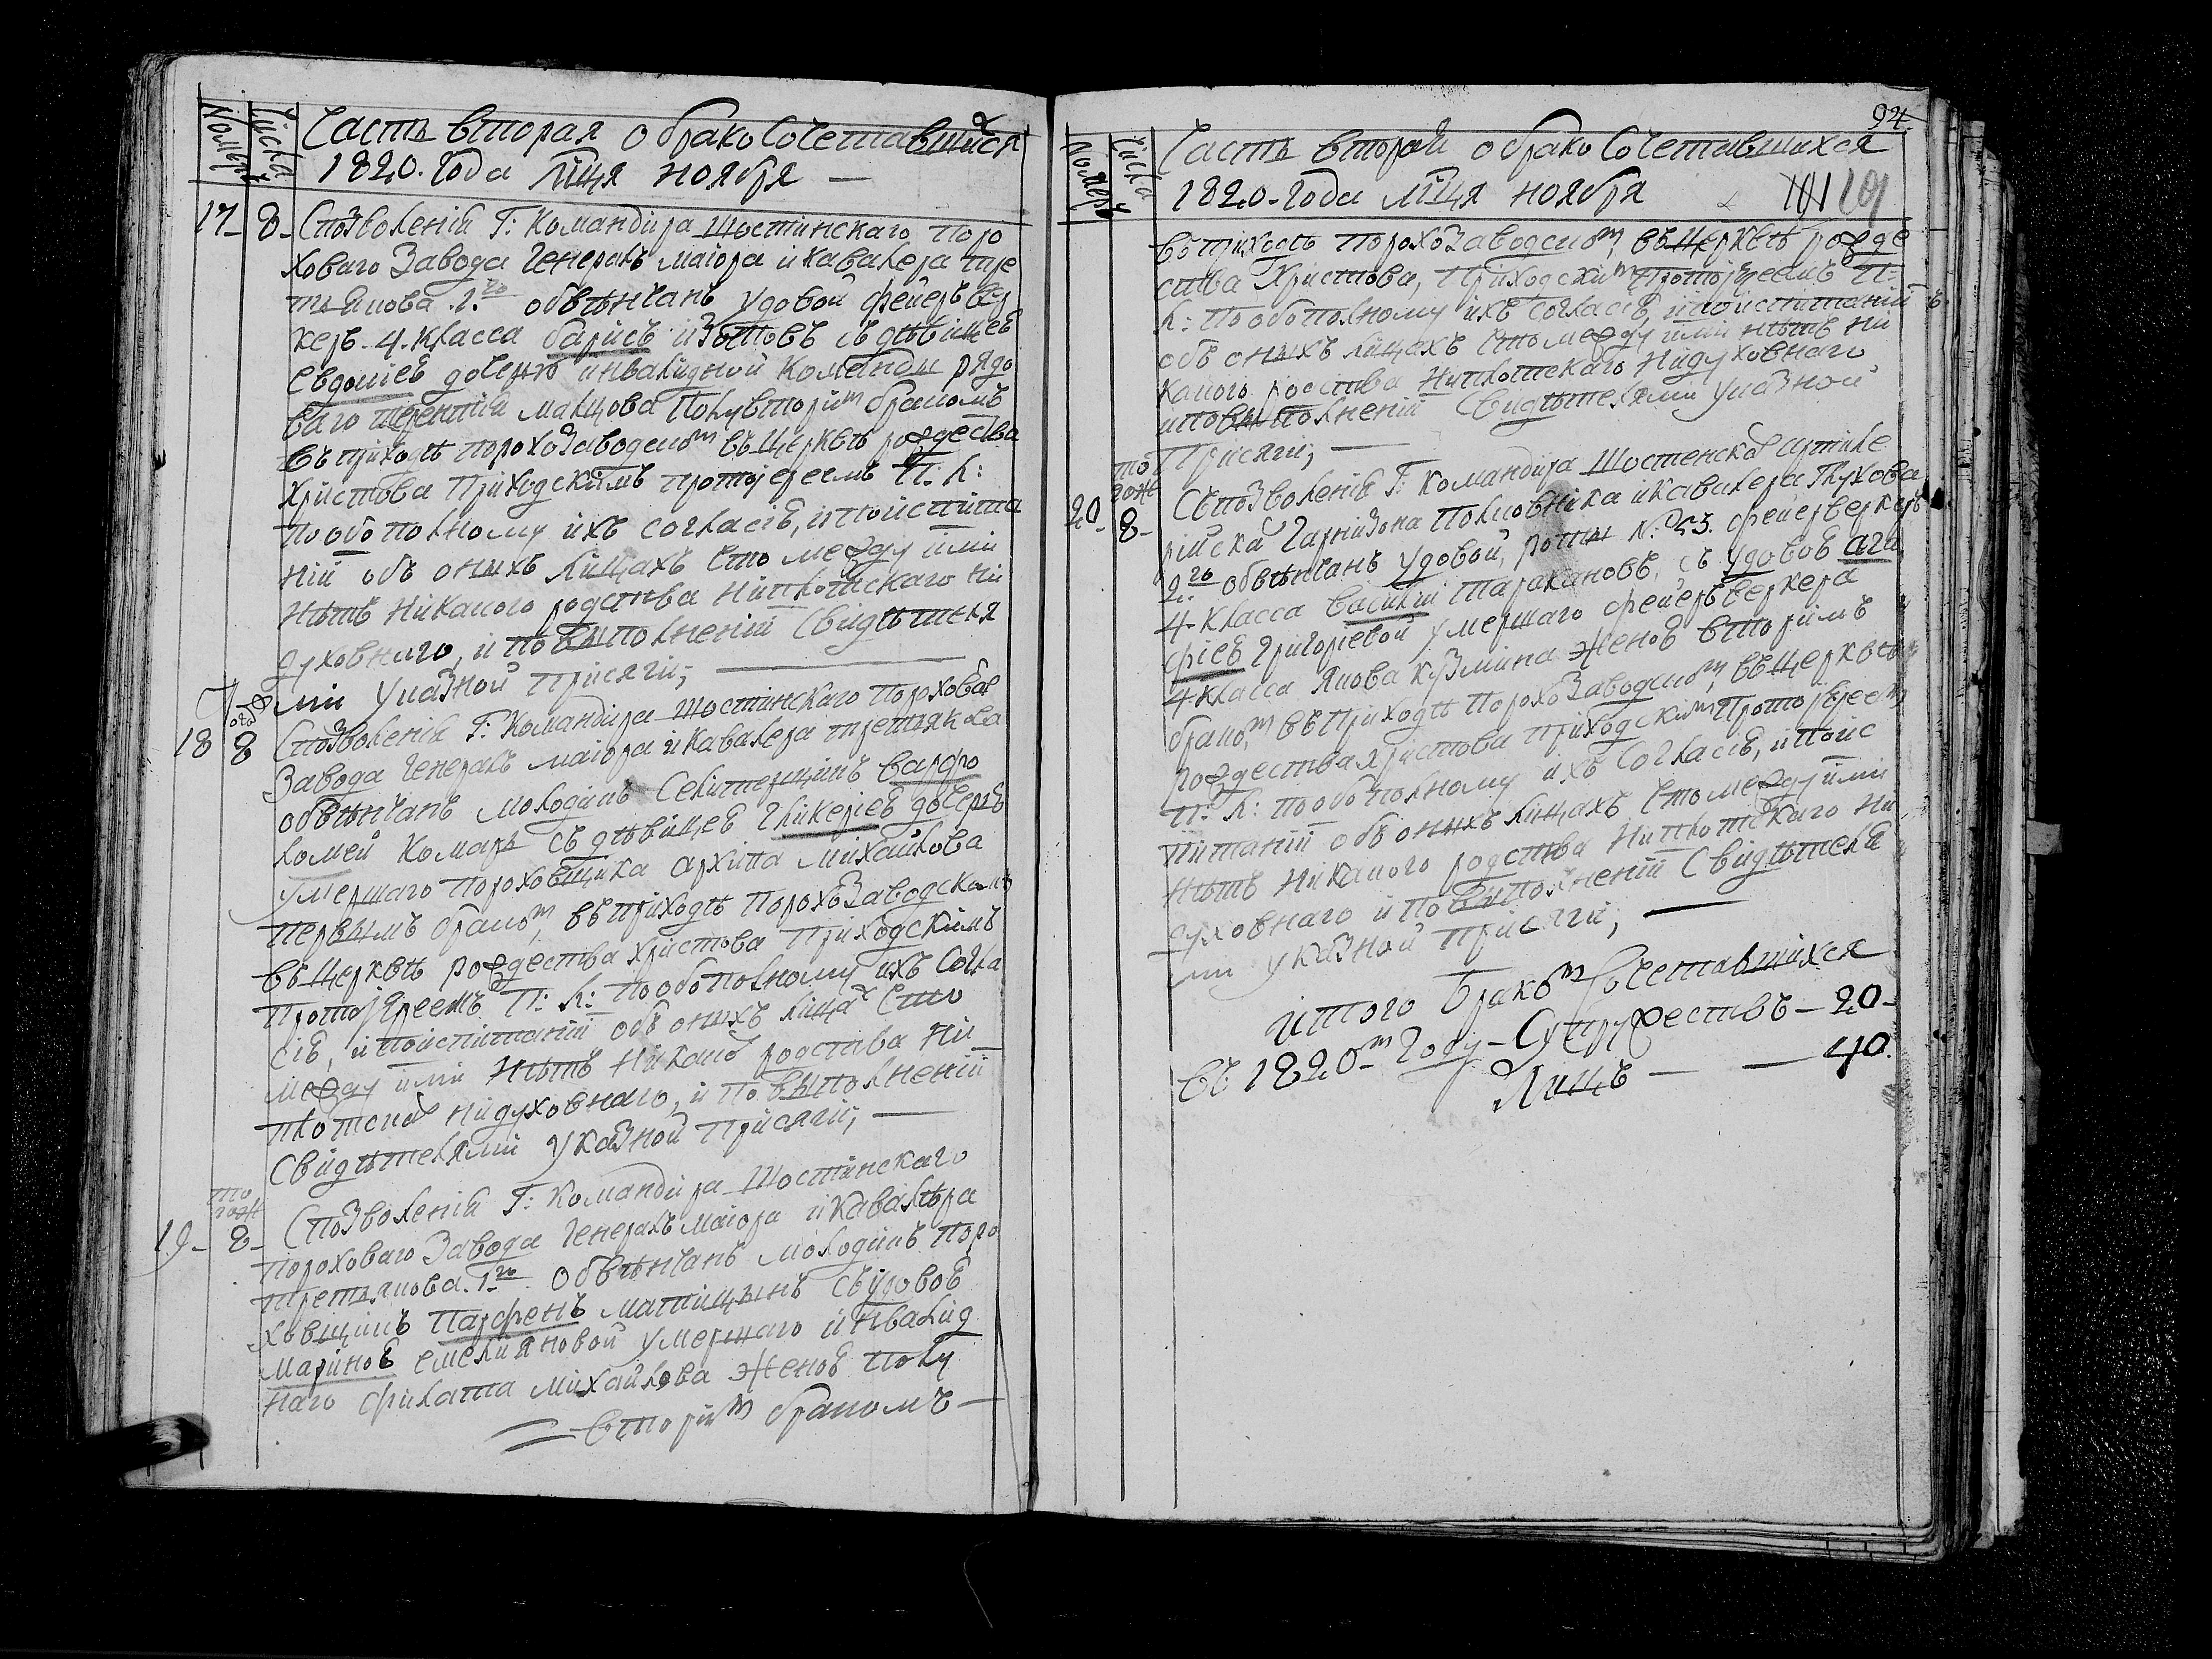 Номеръ
Числа
Часть вторая о бракосочетавшихся
1820. года мца ноября —
17- 8- Спозволенія Г: Командира Шостинскаго поро
ховаго завода Генералъ маіора и кавалера тре
тьякова 1.го обвѣнчанъ удовой фейерьвер
керъ 4. класса борисъ изотовъ съ дѣвицеѣ
Евдокіеѣ дочерью инвалидной команды рядо
ваго терентія малцова полувторим бракомъ
въ приходѣ порохозаводском въ церквѣ рождества
христова приходскимъ протоіереемъ П: Л:
по обополному ихъ согласіѣ, и поиспита
ніи объ оныхъ лицахъ что между ими
нѣтъ никакого родства ни плотскаго ни
духовнаго, и по выполненіи свидѣтеля
ми указной присяги; —
того ж
18 8 Спозволенія Г: Командира Шостинскаго пороховаг
завода генералъ маіора и кавалера третьякова
обвѣнчанъ молодикъ Селитерщикъ варфо
ломей Комаръ съ дѣвицеѣ гликеріеѣ дочерью
умершаго пороховщика архипа михайлова
первымъ браком, въ приходѣ порохозаводскимъ
въ церквѣ рождества христова приходскимъ
протоіереемъ П: Л: по обополному ихъ согла
сіѣ, и поиспитаніи объ оныхъ лицах что
между ими нѣтъ никаког родства ни
плотског ни духовнаго, и по выполненіи
свидѣтелями указной присяги; —
то гож
19- 8- Спозволенія Г: Командира Шостинскаго
пороховаго завода генералъ маіора и кавалѣра
третьякова. 1.го обвѣнчанъ молодикъ поро
ховщикъ парфенъ матицынъ съ удовоѣ
мариноѣ емелияновой умершаго инвалид
наго филата михайлова женоѣ полу
вторим бракомъ —
94.
Номеръ
Числа
Часть вторая о бракосочетавшихся
1820. года мца ноября
19
въ приходѣ порохозаводском, въ церквѣ рожде
ства Христова, приходским протоіреемъ П:
Л: по обополному ихъ согласіѣ, и поиспитаніи
объ оныхъ лицахъ что между ими нѣтъ ни
какого родства ни плотскаго ни духовнаго
и по выполненіи свидѣтелями указной
присяги; —
то гож
20- 8- Съ позволенія Г: командира Шостенског артиле
рійског гарнизона полковника и кавалера Глухова
2.го обвѣнчанъ удовой, роты N: 53. фейерверкеръ
4- класса василій таракановъ, съ удовоѣ ага
фіеѣ григоріевой умершаго фейерьверкера
4- класса якова кузмина женоѣ вторимъ
браком, въ приходѣ порохозаводском, въ церквѣ
рождества христова приходским протоіереем
П: Л: по обополному ихъ согласіѣ, и поис
питаніи объ оныхъ лицахъ что между ими
нѣтъ никакого родства ни плотскаго ни
духовнаго и по выполненіи свидѣтеля
ми указной присяги; —
итого браком сочетавшихся
въ 1820-м году - супружествъ - 20-
Лицъ — — 40.